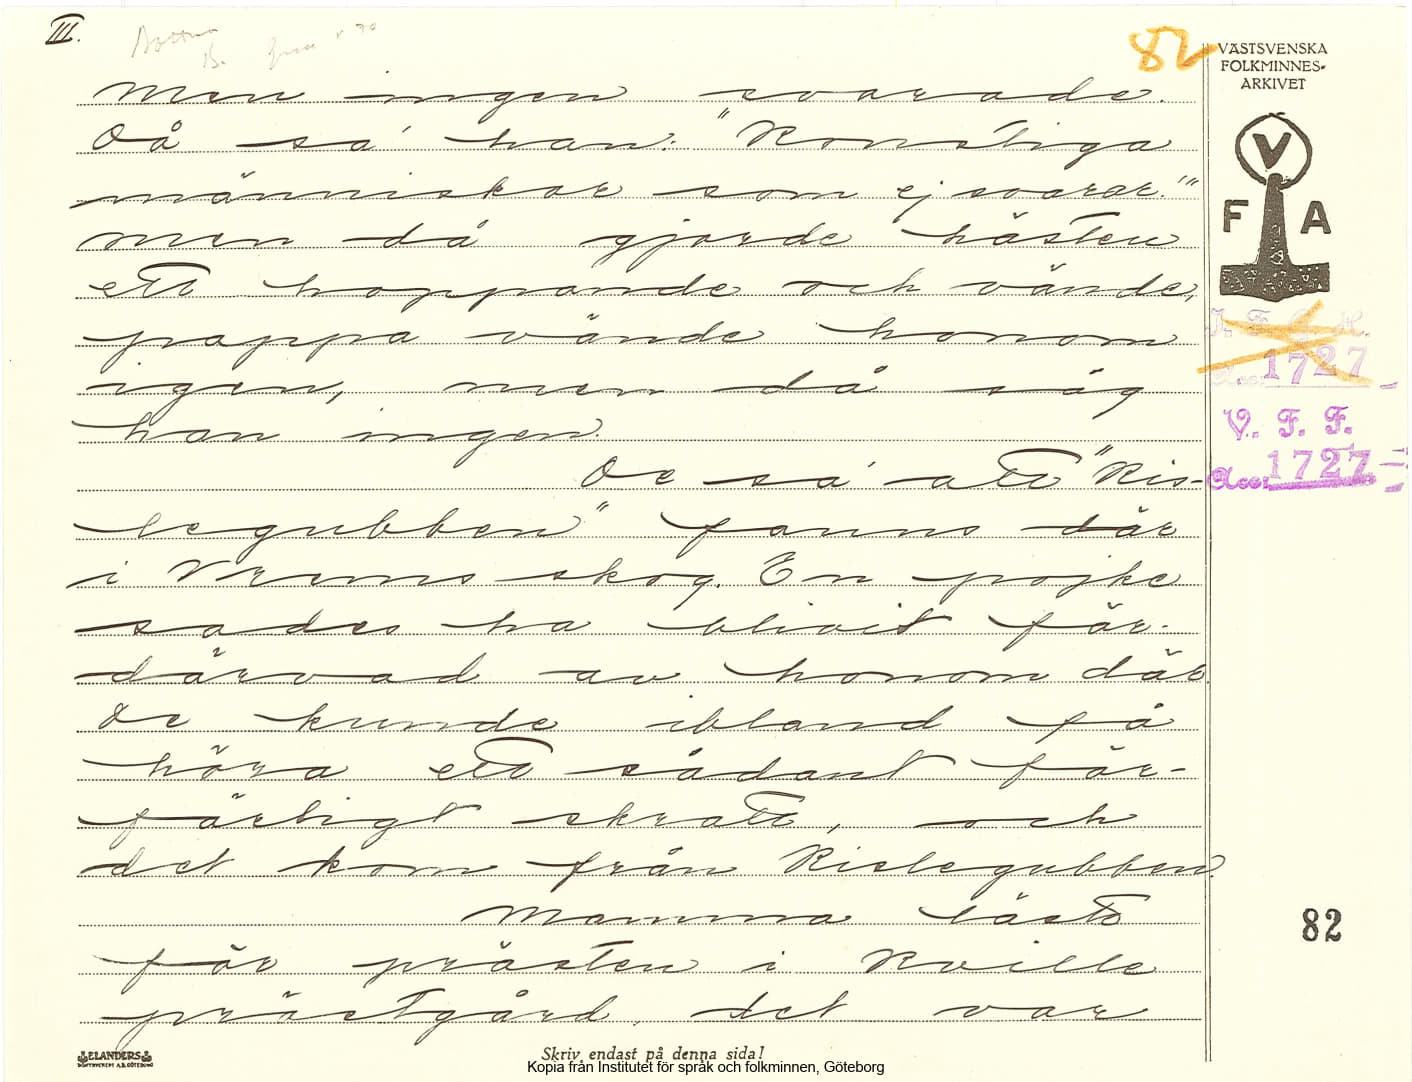 III.
82
VÄSTSVENSKA
FOLKMINNES-
ARKIVET
V
F A
men ingen svarade.
Då sa' han: "Konstiga
människor som ej svarar."
men då gjorde hästen
ett hoppande och vände,
pappa vände honom
igen, men då såg
han ingen.
De sa' att "Ris-
legubben" fanns där
i Vrems skog. En pojke
sades ha blivit för-
därvad av honom där.
De kunde ibland få
höra ett sådant för-
färligt skratt, och
det kom från Rislegubben.
Mamma läste
för prästen i Kville
prästgård, det var
I. F. G. H.
Acc: 1727
V. F. F.
Acc: 1727
82
ELANDERS
BOKTRYCKERI A.B. GÖTEBORG
Skriv endast på denna sida!
Kopia från Institutet för språk och folkminnen, Göteborg